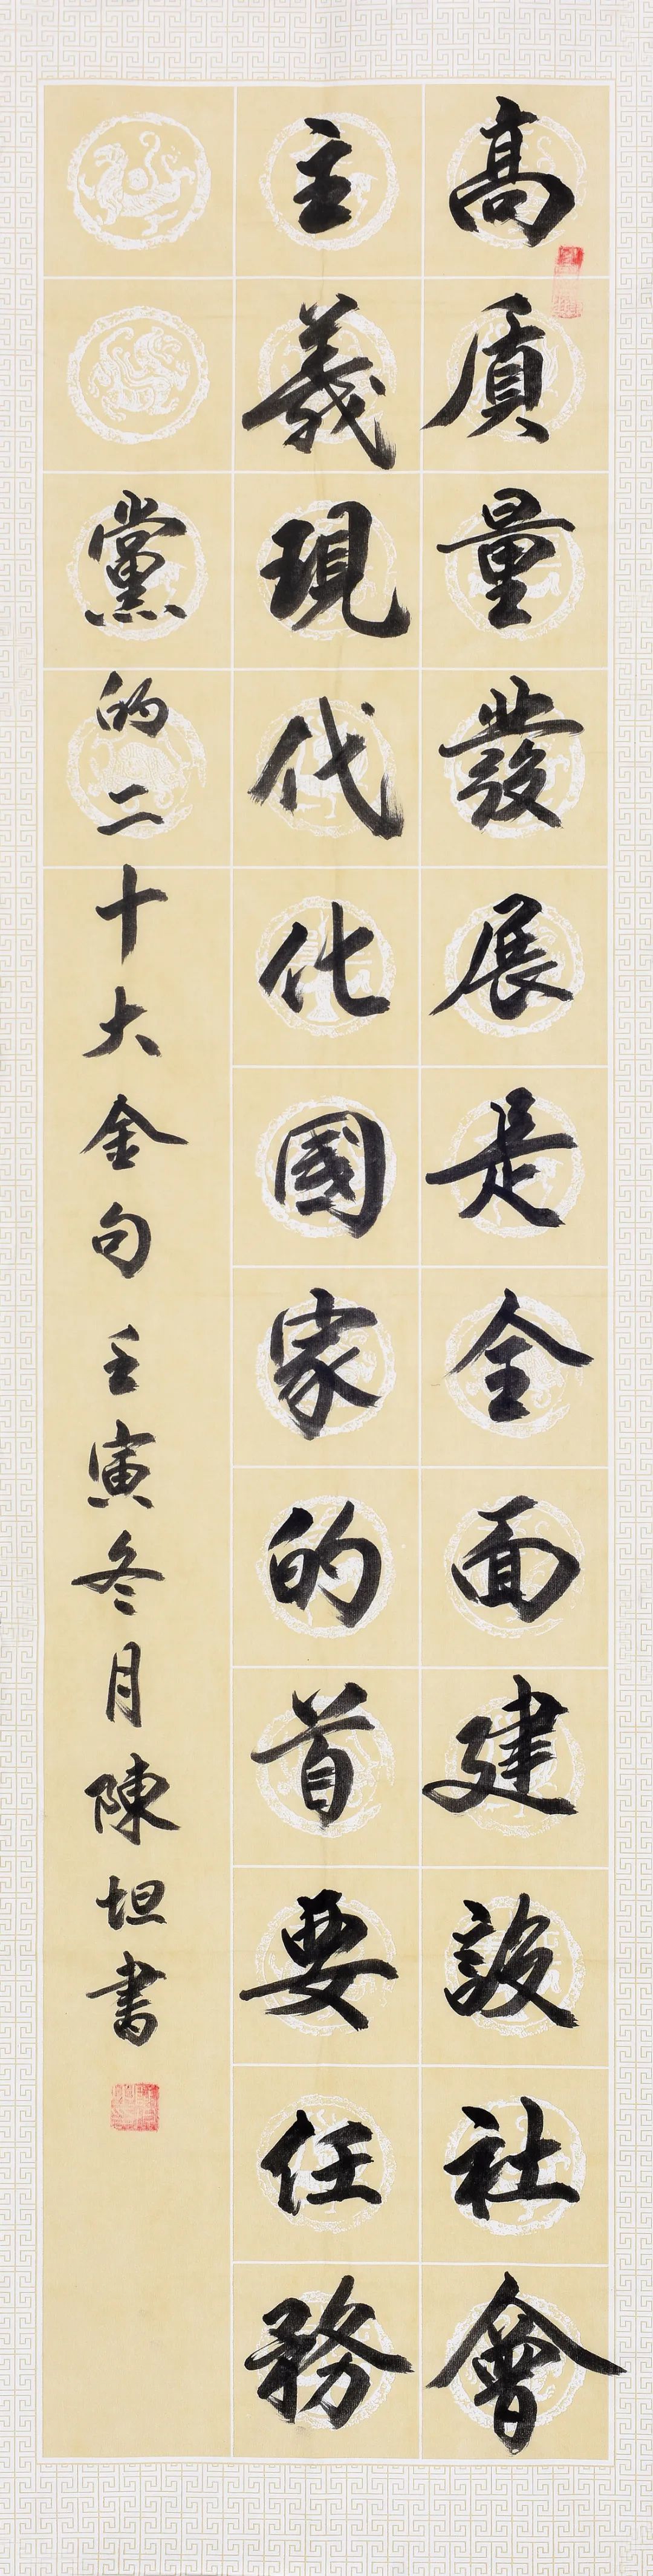 高質量發展是全面建設社會
主義現代化國家的首要任務
黨的二十大金句壬寅冬月陳坦書